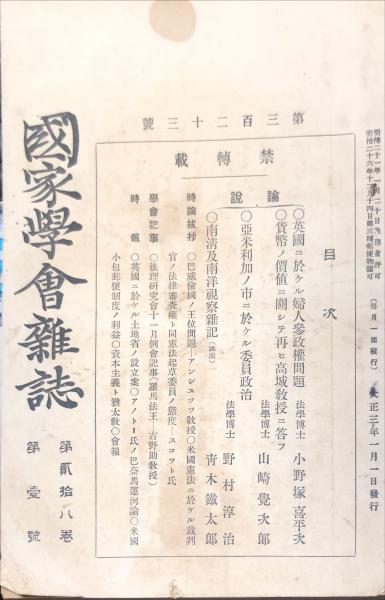 明治二十六年十一月十四日第三種郵便物認可
(毎月一回發行)
大正三年一月一日發行
第三百二十三號
禁轉載
目次
論說
○英國ニ於ケル婦人參政權問題
法學博士
小野塚喜平次
○貨幣ノ價値ニ關シテ再ヒ高城敎授ニ答フ
法學博士
山崎覺次郎
○亞米利加ノ市ニ於ケル委員政治
法學博士
野村淳治
○南清及南洋視察雜記(講演)
靑木鐵太郎
時論拔抄
○巴威倫國ノ王位問題―アンシュッツ敎授○米國憲法ニ於ケル裁判
官ノ法律審査權ト同憲法起草委員ノ態度―スコット氏
學會記事
○法理硏究會十一月例會記事(羅馬法王 吉野助敎授)
時報
○英國ニ於ケル土地省ノ設立案○アノトー氏ノ巴奈馬運河論○米國
小包郵便制度ノ利益○資本主義ト猶太敎○會報
國家學會雜誌
第貳拾八卷
第壹號